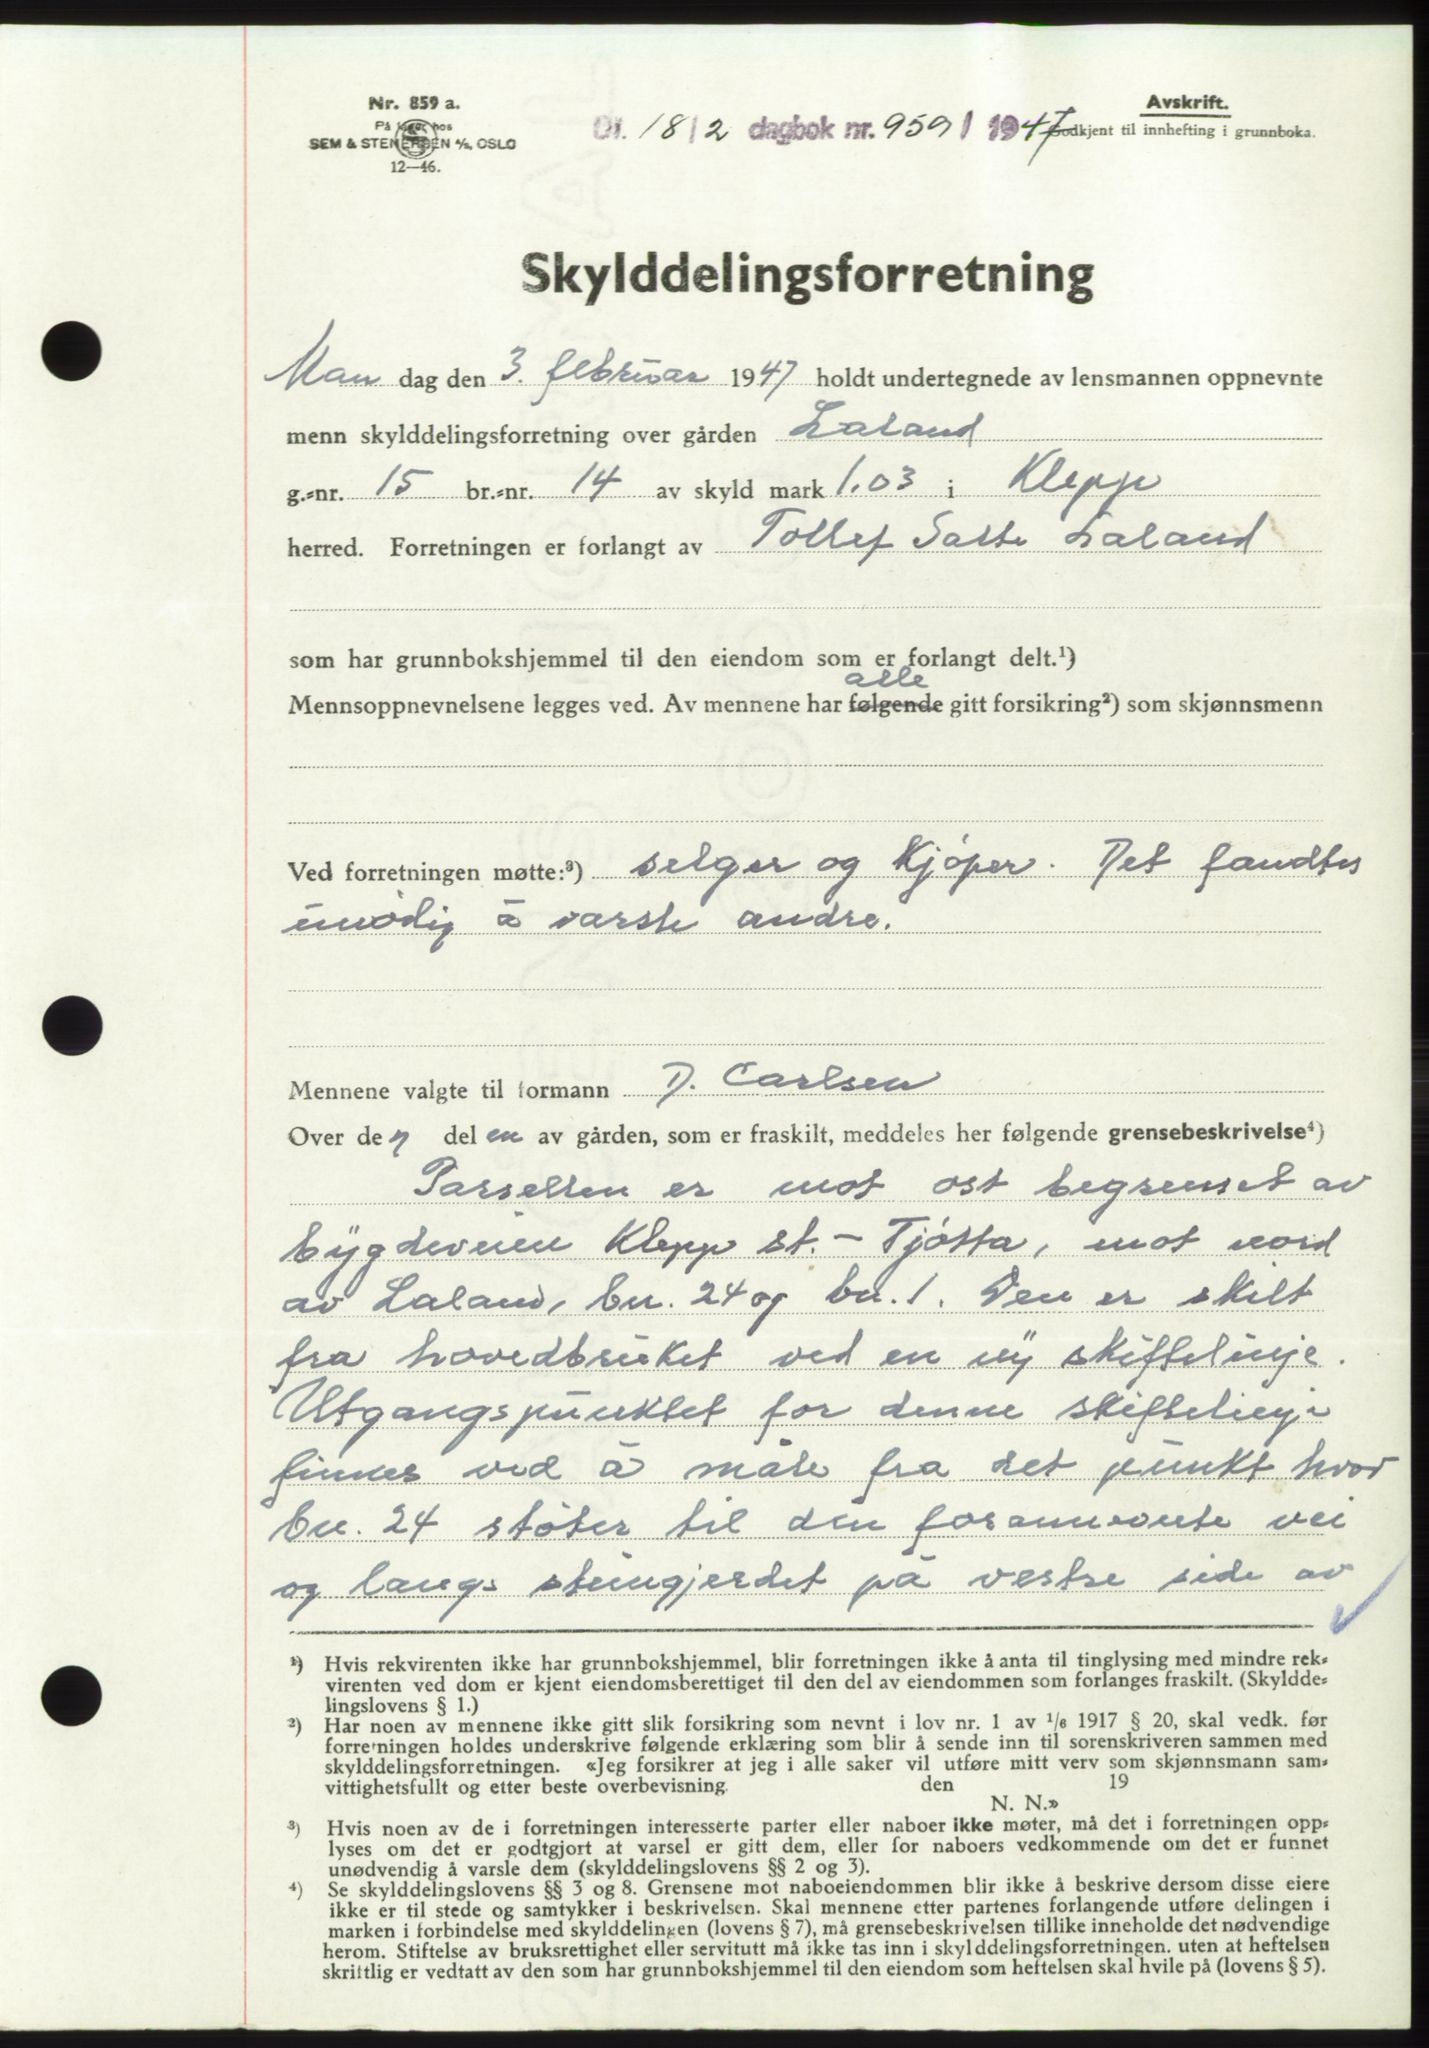 Nr. 859 a.
På lager hos
SEM & STENERSEN A/S, OSLO
12—46.
Dt. 18/2 dagbok nr. 959 / 1947
Avskrift.
Godkjent til innhefting i grunnboka.
Skylddelingsforretning
Man dag den 3. februar 1947 holdt undertegnede av lensmannen oppnevnte
menn skylddelingsforretning over gården Laland
g.-nr. 15 br.-nr. 14 av skyld mark 1.03 i Klepp
herred. Forretningen er forlangt av Tollef Salte Laland
som har grunnbokshjemmel til den eiendom som er forlangt delt.¹)
alle
Mennsoppnevnelsene legges ved. Av mennene har følgende gitt forsikring²) som skjønnsmenn
Ved forretningen møtte:³) selger og Kjøper. Det fandtes
unødig å varsle andre.
Mennene valgte til formann D. Carlsen
Over den delen av gården, som er fraskilt, meddeles her følgende grensebeskrivelse⁴)
Parsellen er mot ost begrenset av
bygdeveien Klepp st. – Tjøtta, mot nord
av Laland, bn. 24 og bn. 1. Den er skilt
fra hovedbruket ved en ny skiftelinje.
Utgangspunktet for denne skiftelinje
finnes ved å måle fra det punkt hvor
bn. 24 støter til den forannevnte vei
og langs steingjerdet på vestre side av
¹) Hvis rekvirenten ikke har grunnbokshjemmel, blir forretningen ikke å anta til tinglysing med mindre rek-
virenten ved dom er kjent eiendomsberettiget til den del av eiendommen som forlanges fraskilt. (Skyldde-
lingslovens § 1.)
²) Har noen av mennene ikke gitt slik forsikring som nevnt i lov nr. 1 av ¹/6 1917 § 20, skal vedk. før
forretningen holdes underskrive følgende erklæring som blir å sende inn til sorenskriveren sammen med
skylddelingsforretningen. «Jeg forsikrer at jeg i alle saker vil utføre mitt verv som skjønnsmann sam-
vittighetsfullt og etter beste overbevisning. den 19
N. N.»
³) Hvis noen av de i forretningen interesserte parter eller naboer ikke møter, må det i forretningen opp-
lyses om det er godtgjort at varsel er gitt dem, eller for naboers vedkommende om det er funnet
unødvendig å varsle dem (skylddelingslovens §§ 2 og 3).
⁴) Se skylddelingslovens §§ 3 og 8. Grensene mot naboeiendommen blir ikke å beskrive dersom disse eiere
ikke er til stede og samtykker i beskrivelsen. Skal mennene etter partenes forlangende utføre delingen i
marken i forbindelse med skylddelingen (lovens § 7), må grensebeskrivelsen tillike inneholde det nødvendige
herom. Stiftelse av bruksrettighet eller servitutt må ikke tas inn i skylddelingsforretningen. uten at heftelsen
skriftlig er vedtatt av den som har grunnbokshjemmel til den eiendom som heftelsen skal hvile på (lovens § 5).